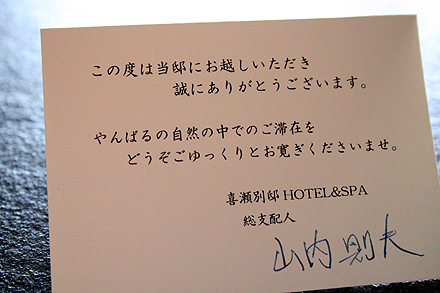 この度は当邸にお越しいただき
誠にありがとうございます。
やんばるの自然の中でのご滞在を
どうぞごゆっくりとお寛ぎくださいませ。
喜瀬別邸 HOTEL&SPA
総支配人
山内則夫